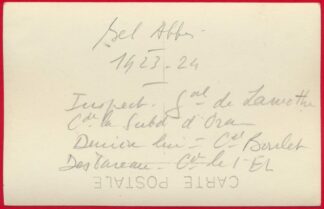 Bel Abbès
1923-24
Inspect. Gal de Lamothe
Cdt la Subd d'Oran
Derrière lui = Cdt
= Cdt le 1 EL
CARTE POSTALE